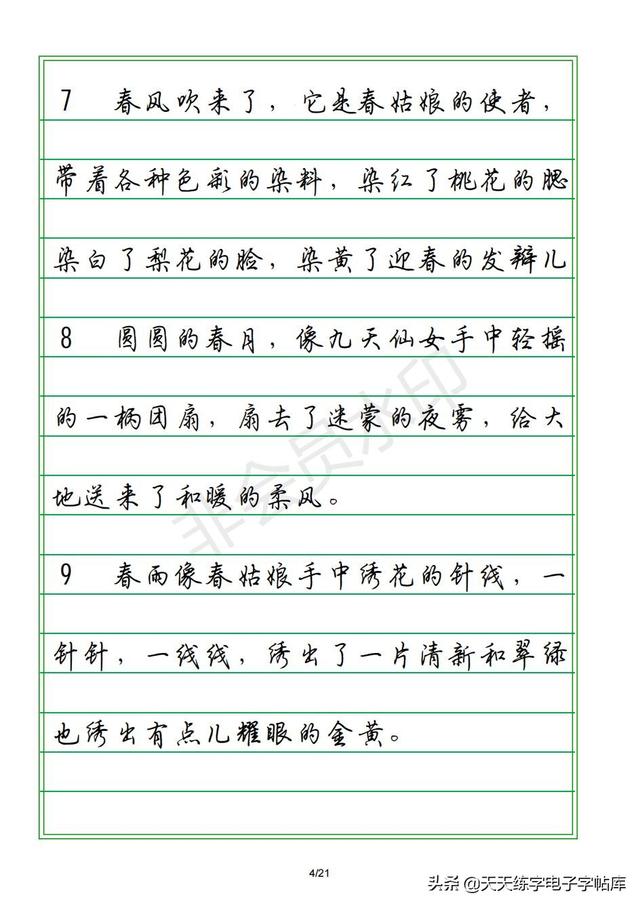 7 春风吹来了，它是春姑娘的使者，
带着各种色彩的染料，染红了桃花的腮
染白了梨花的脸，染黄了迎春的发辫儿
8 圆圆的春月，像九天仙女手中轻摇
的一柄团扇，扇去了迷蒙的夜雾，给大
地送来了和暖的柔风。
9 春雨像春姑娘手中绣花的针线，一
针针，一线线，绣出了一片清新和翠绿
也绣出有点儿耀眼的金黄。
非会员水印
4/21
头条 @天天练字电子字帖库